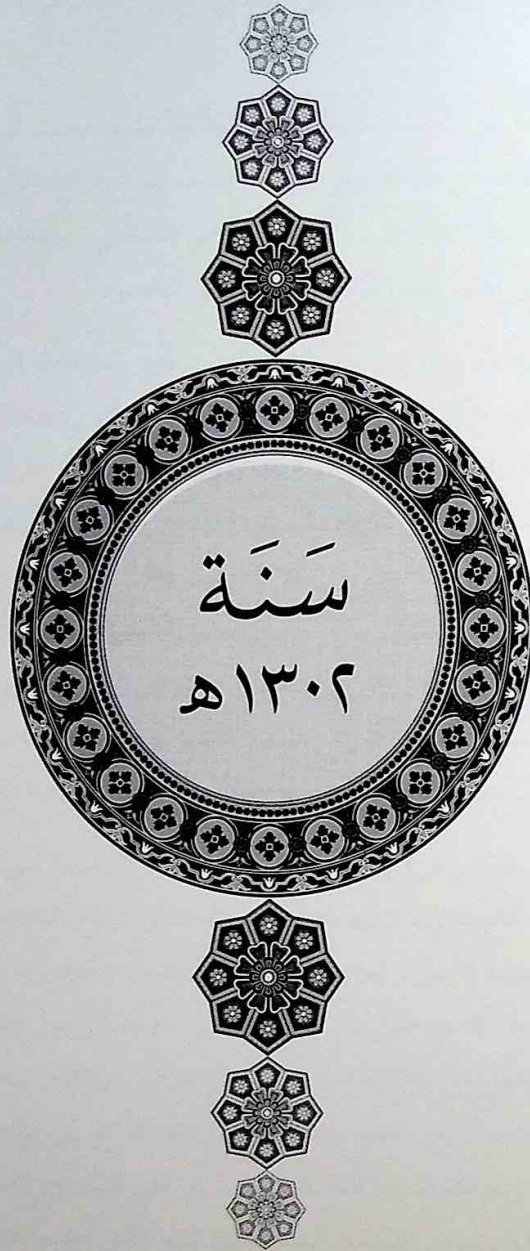 سَنَة
١٣٠٢ه